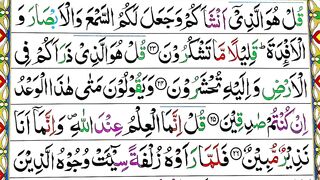 قُلْ هُوَ الَّذِیْۤ اَنْشَاَكُمْ وَجَعَلَ لَكُمُ السَّمْعَ وَالْاَبْصَارَ وَ
الْاَفْـِٕدَةَ ؕ قَلِیْلًا مَّا تَشْكُرُوْنَ ﴿۲۳﴾ قُلْ هُوَ الَّذِیْ ذَرَاَكُمْ فِی
الْاَرْضِ وَ اِلَیْهِ تُحْشَرُوْنَ ﴿۲۴﴾ وَیَقُوْلُوْنَ مَتٰی هٰذَا الْوَعْدُ
اِنْ كُنْتُمْ صٰدِقِیْنَ ﴿۲۵﴾ قُلْ اِنَّمَا الْعِلْمُ عِنْدَ اللّٰهِ ۪ وَاِنَّمَاۤ اَنَا
نَذِیْرٌ مُّبِیْنٌ ﴿۲۶﴾ فَلَمَّا رَاَوْهُ زُلْفَةً سِیْٓـَٔتْ وُجُوْهُ الَّذِیْنَ